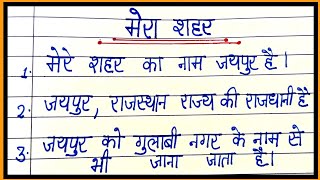 मेरा शहर
1. मेरे शहर का नाम जयपुर है।
2. जयपुर, राजस्थान राज्य की राजधानी है
3. जयपुर को गुलाबी नगर के नाम से
भी जाना जाता है।